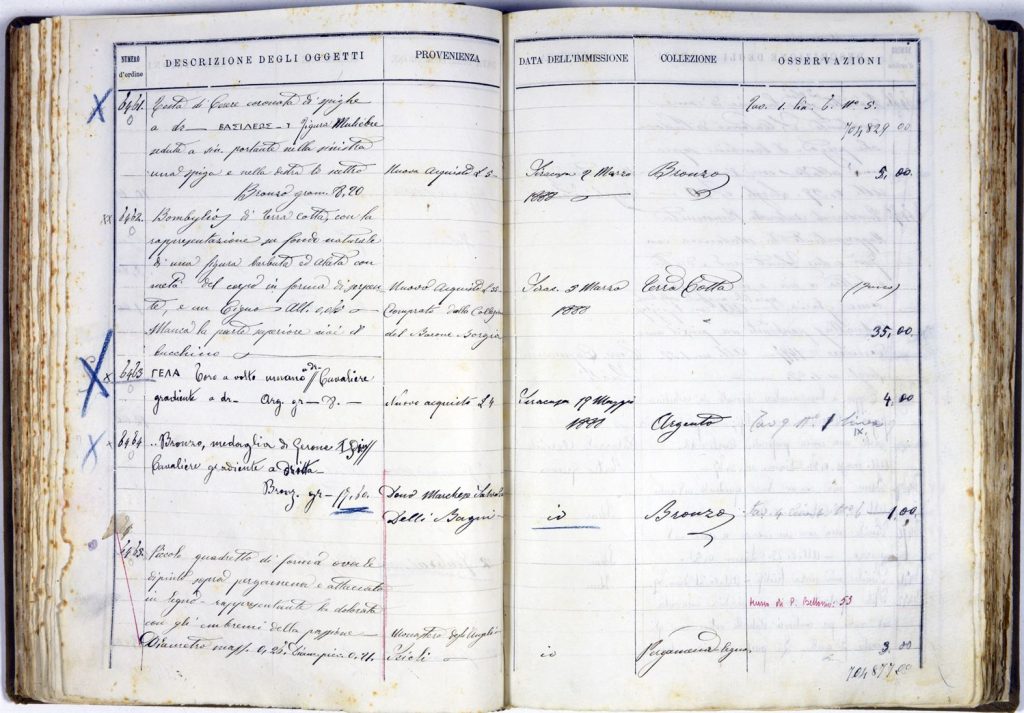 NUMERO d'ordine
DESCRIZIONE DEGLI OGGETTI
PROVENIENZA
DATA DELL'IMMISSIONE
COLLEZIONE
OSSERVAZIONI
6461.
Testa di Cerere coronata di spighe
a dr. — ΒΑΣΙΛΕΩΣ — Figura Muliebre
seduta a sin. portante nella sinistra
una spiga e nella destra lo scettro
Bronzo gram. 8,20
Nuovo Acquisto L 5
Siracusa 2 Marzo
1888
Bronzo
Tav. 1. lin. 6. Nº 5.
704829 00
5,00
6462.
Bombylios di terra cotta con la
rappresentazione su fondo naturale
di una figura barbuta ed alata con
metà del corpo in forma di serpen
te, e un Cigno
Manca la parte superiore cioè il
bucchino
Nuovo Acquisto L 35
Comprato dalla Collez.
del Barone Borgia
Sirac. 2 Marzo
1888
Terra Cotta
35,00
6463
ΓΕΛΑ Toro a volto umano Cavaliere
gradiente a dr — Arg. gr —
Nuovo acquisto L 4
Siracusa 19 Maggio
1888
Argento
Tav 9 Nº 1 linea
IX.
4,00
6464
Bronzo, medaglia di Gerone
Cavaliere gradiente a dritta
Bronz. gr — 17,60.
Dono Marchese
Delli Bagni
io
Bronzo
1,00
6465.
Piccolo quadretto di forma ovale
dipinto sopra pergamena e attaccato
in legno — rappresentante la dolorata
con gli emblemi della passione —
Diametro mass. 0,26. Diam. pic. 0,21.
Monastero degli Angeli
io
Pergamena Legno.
Museo di P. Bellomo: 53
3,00
704877 00